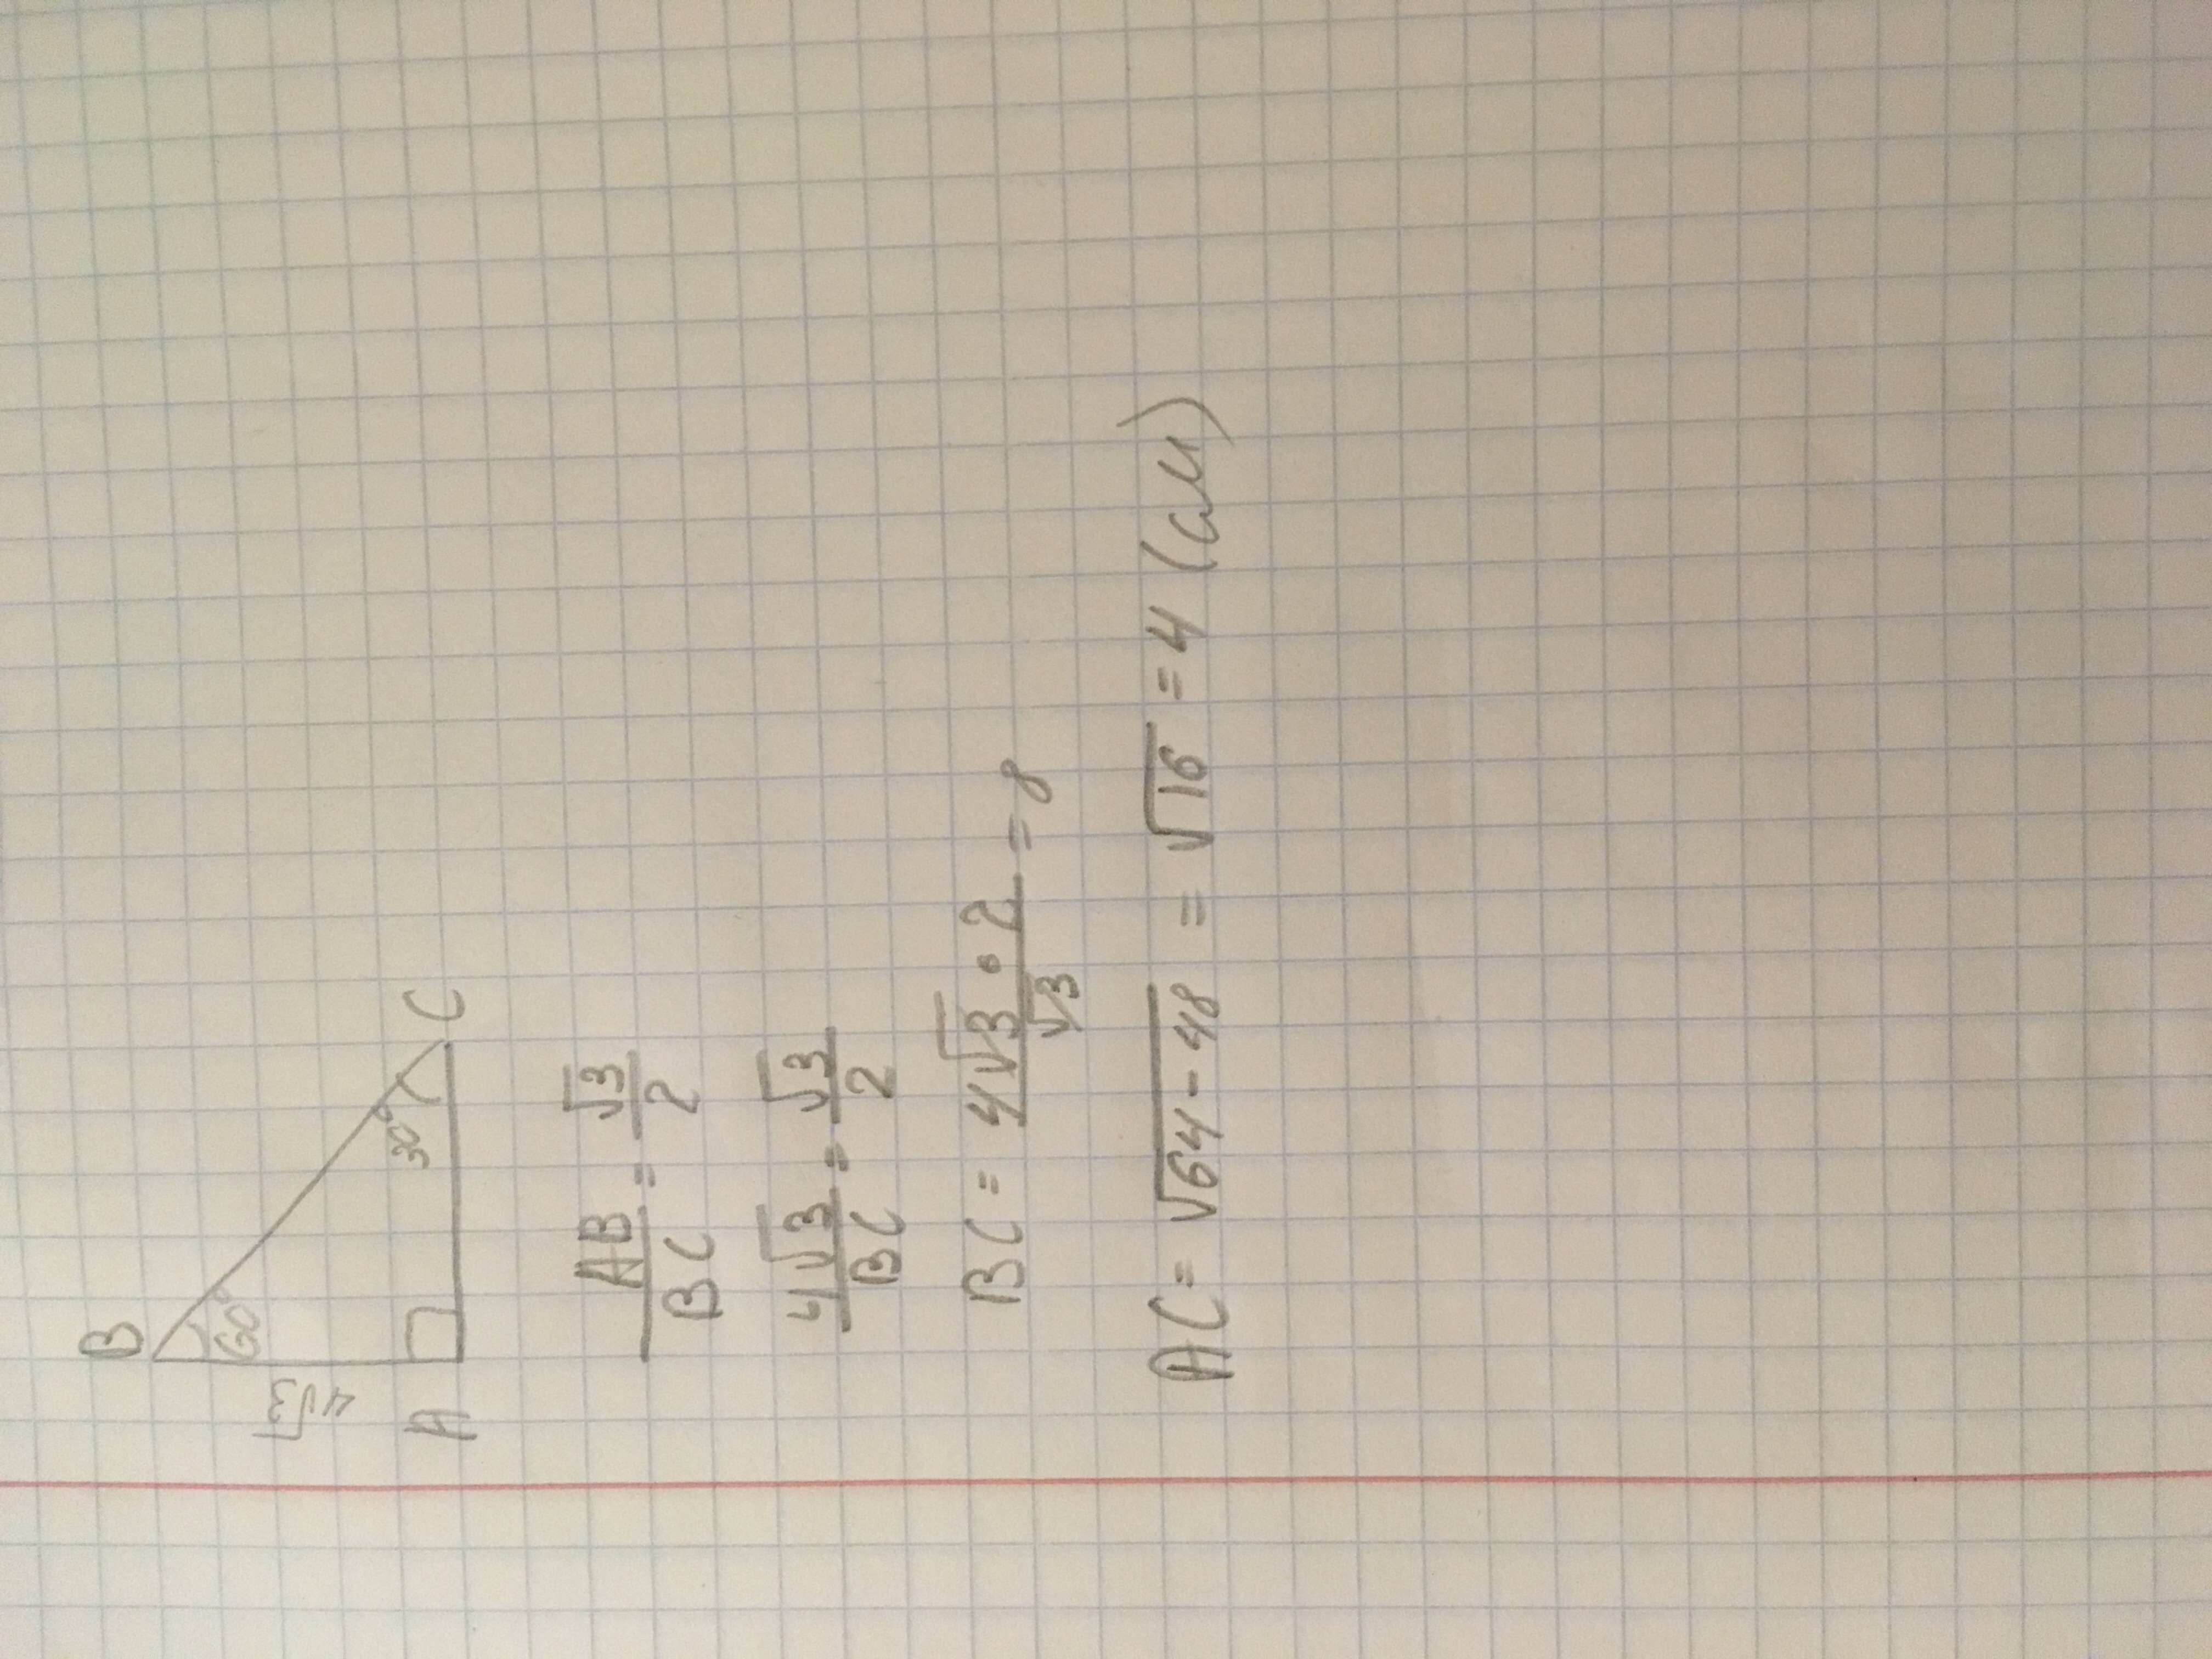 B
60°
4√3
30°
A
C
AB/BC = √3/2
4√3/BC = √3/2
BC = 4√3 • 2/√3 = 8
AC = √64-48 = √16 = 4 (см)